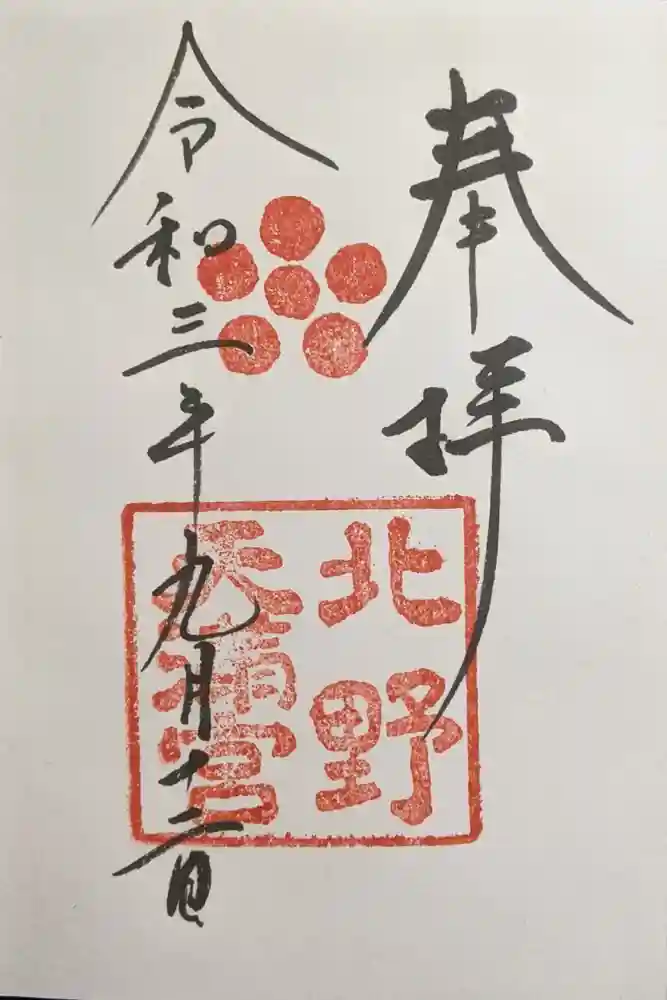 奉拝
令和三年九月十二日
北野
天満宮